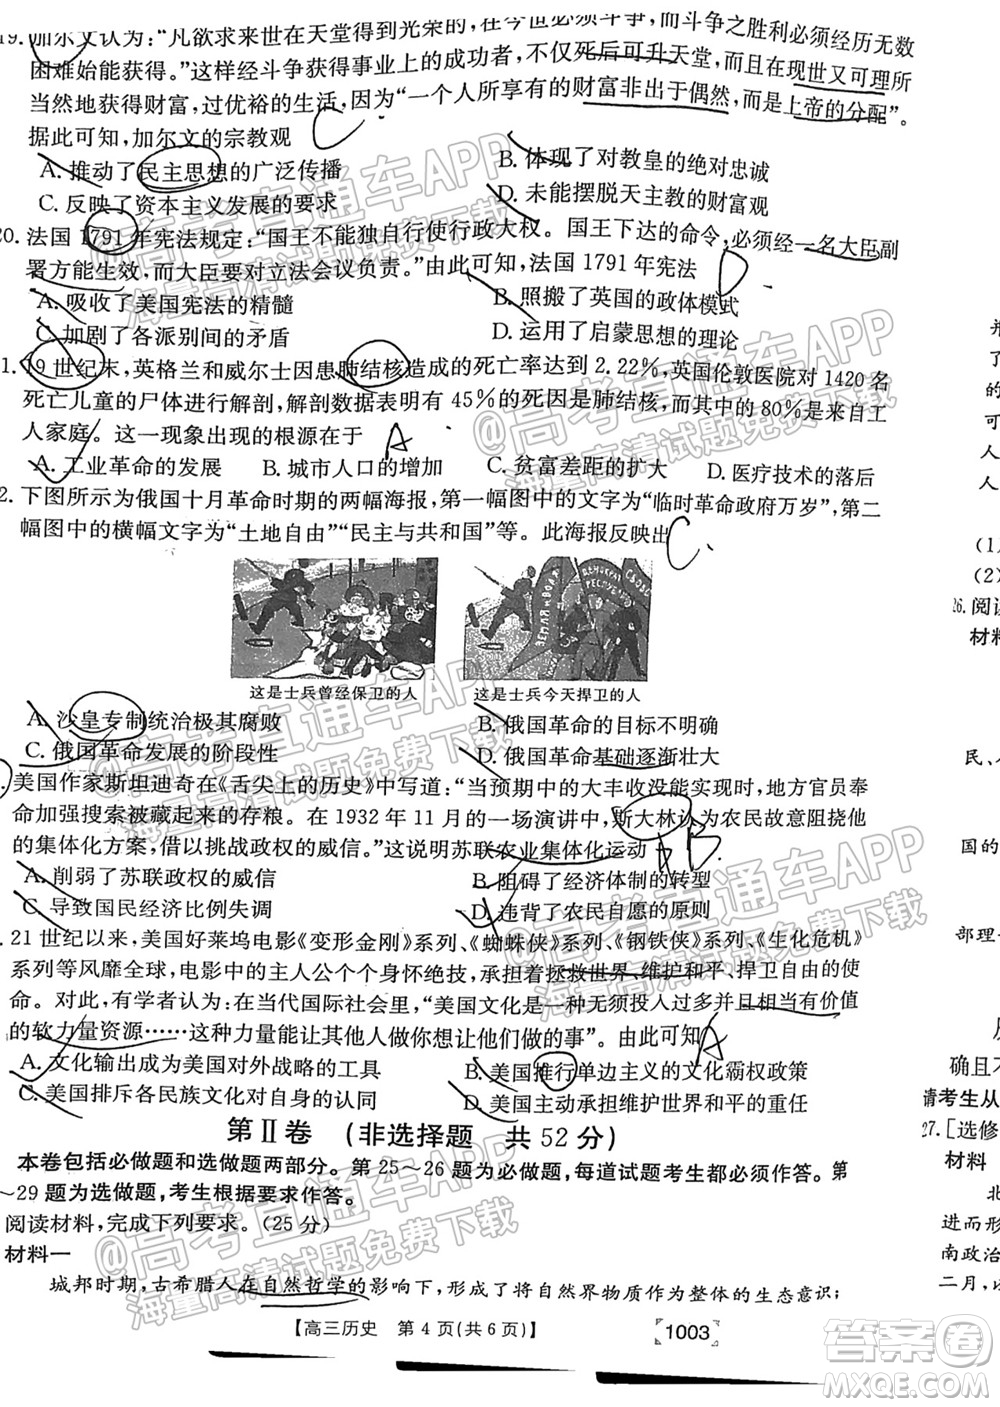 19. 加尔文认为：“凡欲求来世在天堂得到光荣的，在今世必须斗争，而斗争之胜利必须经历无数
困难始能获得。”这样经斗争获得事业上的成功者，不仅死后可升天堂，而且在现世又可理所
当然地获得财富，过优裕的生活，因为“一个人所享有的财富非出于偶然，而是上帝的分配”。
据此可知，加尔文的宗教观
A. 推动了民主思想的广泛传播
B. 体现了对教皇的绝对忠诚
C. 反映了资本主义发展的要求
D. 未能摆脱天主教的财富观
20. 法国 1791 年宪法规定：“国王不能独自行使行政大权。国王下达的命令，必须经一名大臣副
署方能生效，而大臣要对立法会议负责。”由此可知，法国 1791 年宪法
A. 吸收了美国宪法的精髓
B. 照搬了英国的政体模式
C. 加剧了各派别间的矛盾
D. 运用了启蒙思想的理论
1. 19 世纪末，英格兰和威尔士因患肺结核造成的死亡率达到 2.22%，英国伦敦医院对 1420 名
死亡儿童的尸体进行解剖，解剖数据表明有 45%的死因是肺结核，而其中的 80%是来自工
人家庭。这一现象出现的根源在于 A
A. 工业革命的发展 B. 城市人口的增加 C. 贫富差距的扩大 D. 医疗技术的落后
2. 下图所示为俄国十月革命时期的两幅海报，第一幅图中的文字为“临时革命政府万岁”，第二
幅图中的横幅文字为“土地自由”“民主与共和国”等。此海报反映出 C.
ЗЕМЛЯ И ВОЛЯ
ДЕМОКРАТ
РЕСПУБЛИ
这是士兵曾经保卫的人
这是士兵今天捍卫的人
A. 沙皇专制统治极其腐败
B. 俄国革命的目标不明确
C. 俄国革命发展的阶段性
D. 俄国革命基础逐渐壮大
. 美国作家斯坦迪奇在《舌尖上的历史》中写道：“当预期中的大丰收没能实现时，地方官员奉
命加强搜索被藏起来的存粮。在 1932 年 11 月的一场演讲中，斯大林认为农民故意阻挠他
的集体化方案，借以挑战政权的威信。”这说明苏联农业集体化运动 B
A. 削弱了苏联政权的威信
B. 阻碍了经济体制的转型
C. 导致国民经济比例失调
D. 违背了农民自愿的原则
. 21 世纪以来，美国好莱坞电影《变形金刚》系列、《蜘蛛侠》系列、《钢铁侠》系列、《生化危机》
系列等风靡全球，电影中的主人公个个身怀绝技，承担着拯救世界、维护和平、捍卫自由的使
命。对此，有学者认为：在当代国际社会里，“美国文化是一种无须投人过多并且相当有价值
的软力量资源……这种力量能让其他人做你想让他们做的事”。由此可知 A
A. 文化输出成为美国对外战略的工具
B. 美国推行单边主义的文化霸权政策
C. 美国排斥各民族文化对自身的认同
D. 美国主动承担了维护世界和平的重任
第Ⅱ卷 （非选择题 共 52 分）
本卷包括必做题和选做题两部分。第 25～26 题为必做题，每道试题考生都必须作答。第
～29 题为选做题，考生根据要求作答。
阅读材料，完成下列要求。（25 分）
材料一
城邦时期，古希腊人在自然哲学的影响下，形成了将自然界物质作为整体的生态意识；
【高三历史 第 4 页（共 6 页）】
1003
了
的
可
人
(1)
(2)
26. 阅读
材料
民、
国的
部理
确且不
请考生从
27. [选修
材料
北
进而形
南政治
二月，
@高考直通车APP
海量高清试题免费下载
@高考直通车APP
海量高清试题免费下载
@高考直通车APP
海量高清试题免费下载
@高考直通车APP
海量高清试题免费下载
@高考直通车APP
海量高清试题免费下载
答案卷
MXQE.COM